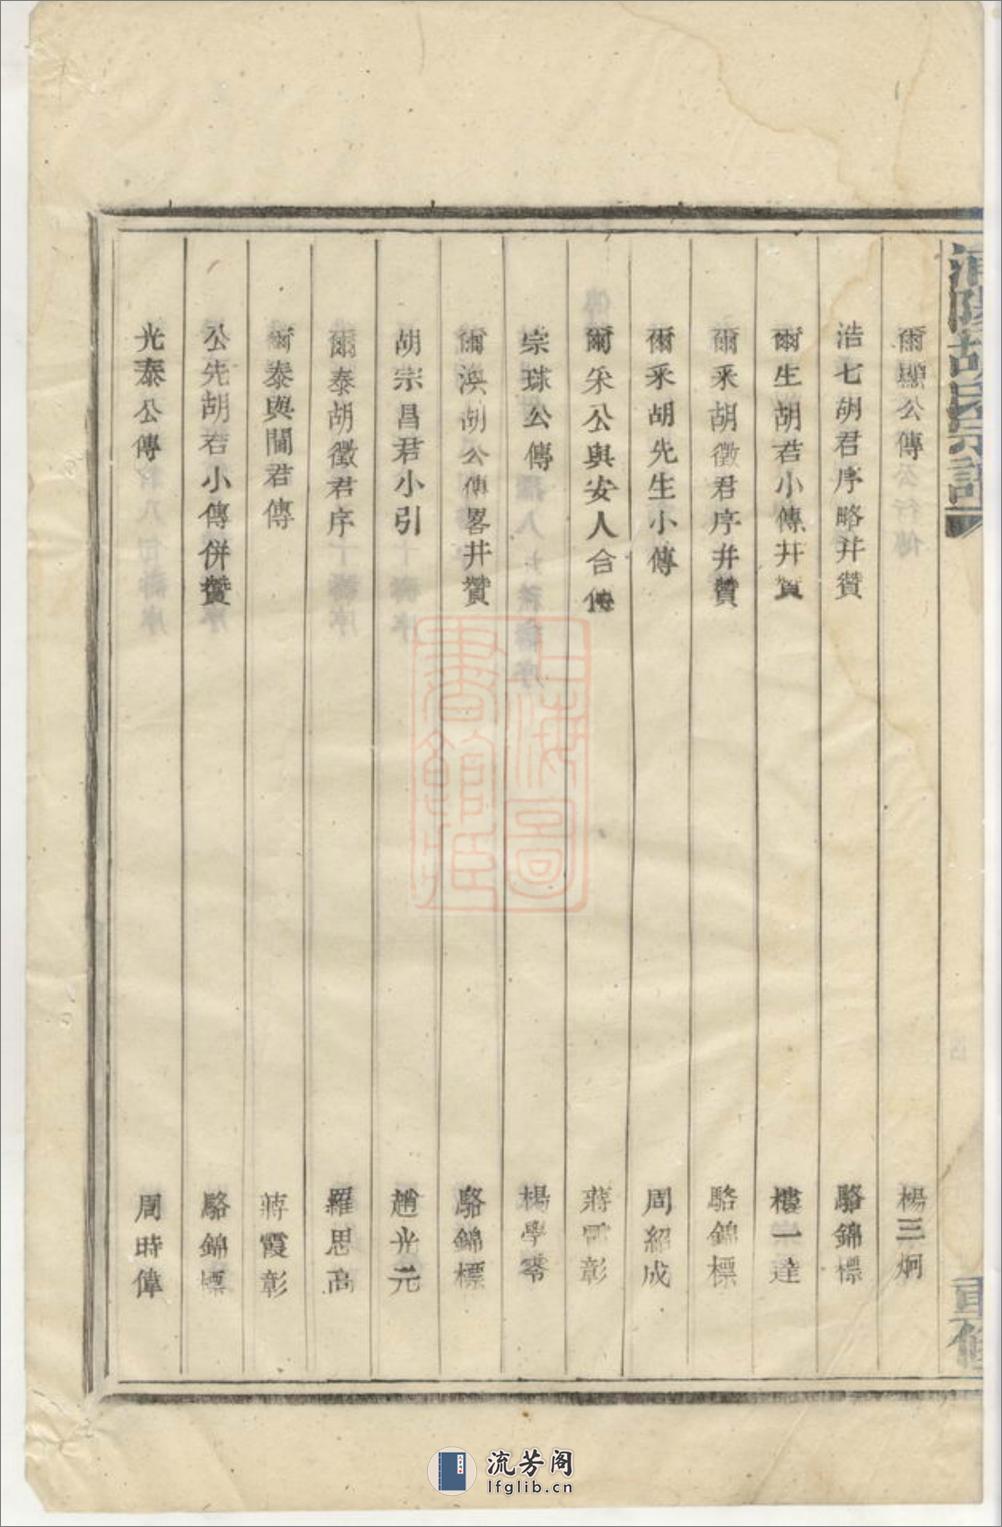 浦陽胡氏宗譜
重修
爾顯公傳 楊三炯
浩七胡君序略幷贊 駱錦標
爾生胡君小傳幷贊 樓一達
爾釆胡徵君序幷贊 駱錦標
爾釆胡先生小傳 周紹成
爾釆公與安人合傳 蔣霞彰
宗球公傳 楊學零
爾渙胡公傳畧幷贊 駱錦標
胡宗昌君小引 趙光元
爾泰胡徵君序 羅思高
爾泰與闇君傳 蔣霞彰
公先胡君小傳併贊 駱錦標
光泰公傳 周時偉
上海圖書館藏
流芳阁
lfglib.cn